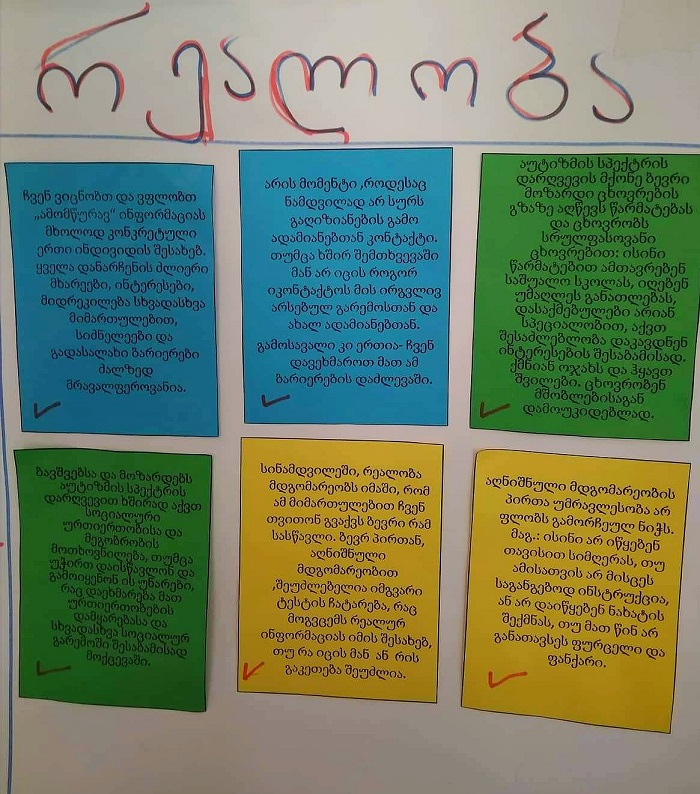 რეალობა
ჩვენ ვიცნობთ და ვფლობთ
„ამომწურავ“ ინფორმაციას
მხოლოდ კონკრეტული
ერთი ინდივიდის შესახებ.
ყველა დანარჩენის ძლიერი
მხარეები, ინტერესები,
მიდრეკილება სხვადასხვა
მიმართულებით,
სიძნელეები და
გადასალახი ბარიერები
ძალზედ
მრავალფეროვანია.
არის მომენტი ,როდესაც
ნამდვილად არ სურს
გაღიზიანების გამო
ადამიანებთან კონტაქტი.
თუმცა ხშირ შემთხვევაში
მან არ იცის როგორ
იკონტაქტოს მის ირგვლივ
არსებულ გარემოსთან და
ახალ ადამიანებთან.
გამოსავალი კი ერთია- ჩვენ
დავეხმაროთ მათ ამ
ბარიერების დაძლევაში.
აუტიზმის სპექტრის
დარღვევის მქონე ბევრი
მოზარდი ცხოვრების
გზაზე აღწევს წარმატებას
და ცხოვრობს
სრულფასოვანი
ცხოვრებით: ისინი
წარმატებით ამთავრებენ
საშუალო სკოლას, იღებენ
უმაღლეს განათლებას,
დასაქმებულები არიან
სპეციალობით, აქვთ
შესაძლებლობა დაკავდნენ
ინტერესების შესაბამისად.
ქმნიან ოჯახს და ჰყავთ
შვილები. ცხოვრობენ
მშობლებისაგან
დამოუკიდებლად.
ბავშვებსა და მოზარდებს
აუტიზმის სპექტრის
დარღვევით ხშირად აქვთ
სოციალური
ურთიერთობისა და
მეგობრობის
მოთხოვნილება, თუმცა
უჭირთ დაისწავლონ და
გამოიყენონ ის უნარები,
რაც დაეხმარება მათ
ურთიერთობების
დამყარებასა და
სხვადასხვა სოციალურ
გარემოში შესაბამისად
მოქცევაში.
სინამდვილეში, რეალობა
მდგომარეობს იმაში, რომ
ამ მიმართულებით ჩვენ
თვითონ გვაქვს ბევრი რამ
სასწავლი. ბევრ პირთან,
აღნიშნული
მდგომარეობით
,შეუძლებელია იმგვარი
ტესტის ჩატარება, რაც
მოგვცემს რეალურ
ინფორმაციას იმის შესახებ,
თუ რა იცის მან ან რის
გაკეთება შეუძლია.
აღნიშნული მდგომარეობის
პირთა უმრავლესობა არ
ფლობს გამორჩეულ ნიჭს.
მაგ.: ისინი არ იწყებენ
თავისით სიმღერას, თუ
ამისათვის არ მისცეს
საგანგებოდ ინსტრუქცია,
ან არ დაიწყებენ ნახატის
შექმნას, თუ მათ წინ არ
განათავსეს ფურცელი და
ფანქარი.